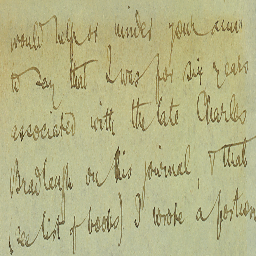 would help or hinder your aims
to say that I was for six years
associated with the late Charles
Bradlaugh on his journal, & that
(see list of books) I wrote a portion